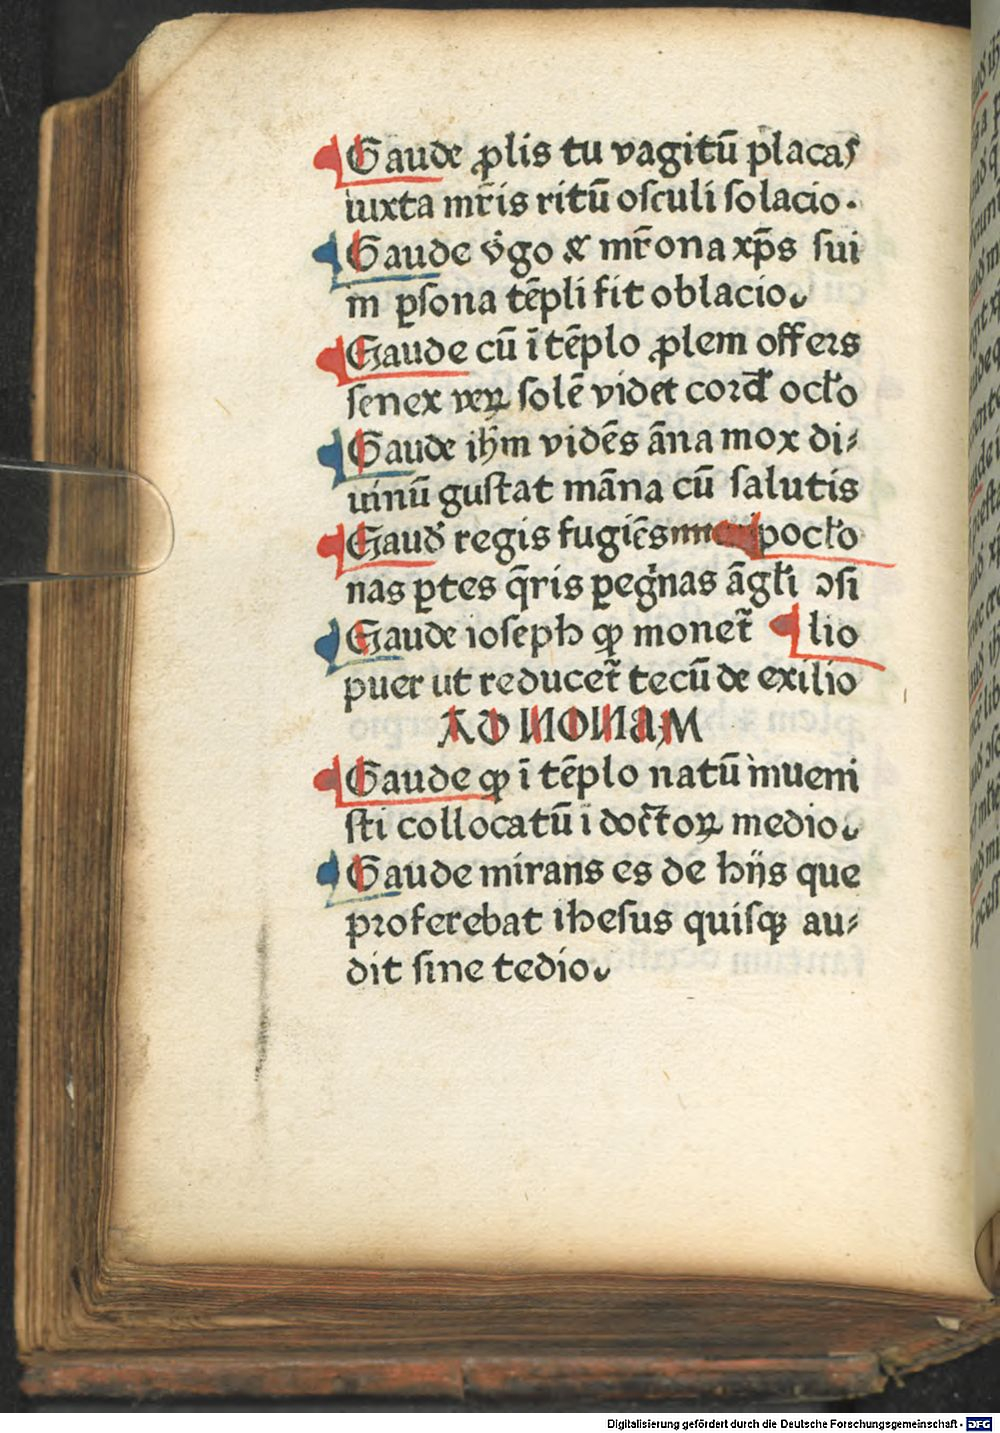 Gaude ꝓlis tu vagitū placas
iuxta mr̄is ritū osculi solacio.
Gaude v̇go & mr̄ona xp̄s sui
in ꝑsona tēpli fit oblacio.
Gaude cū ī tēplo ꝓlem offers
senex veꝝ solē videt cord ocło
Gaude ihm̄ vidēs āna mox di⸗
uinū gustat māna cū salutis
Gaud regis fugiēs pocło
nas ꝑtes q̄ris ꝑegr̄nas āgłi ↄsi
Gaude ioseph ꝙ monet̄ lio
puer ut reducet̄ tecū de exilio
AD NONAM
Gaude ꝙ ī tēplo natū inueni
sti collocatū i doc̄toꝝ medio.
Gaude mirans es de hijs que
proferebat ihesus quisqꝫ au⸗
dit sine tedio.
Digitalisierung gefördert durch die Deutsche Forschungsgemeinschaft - DFG